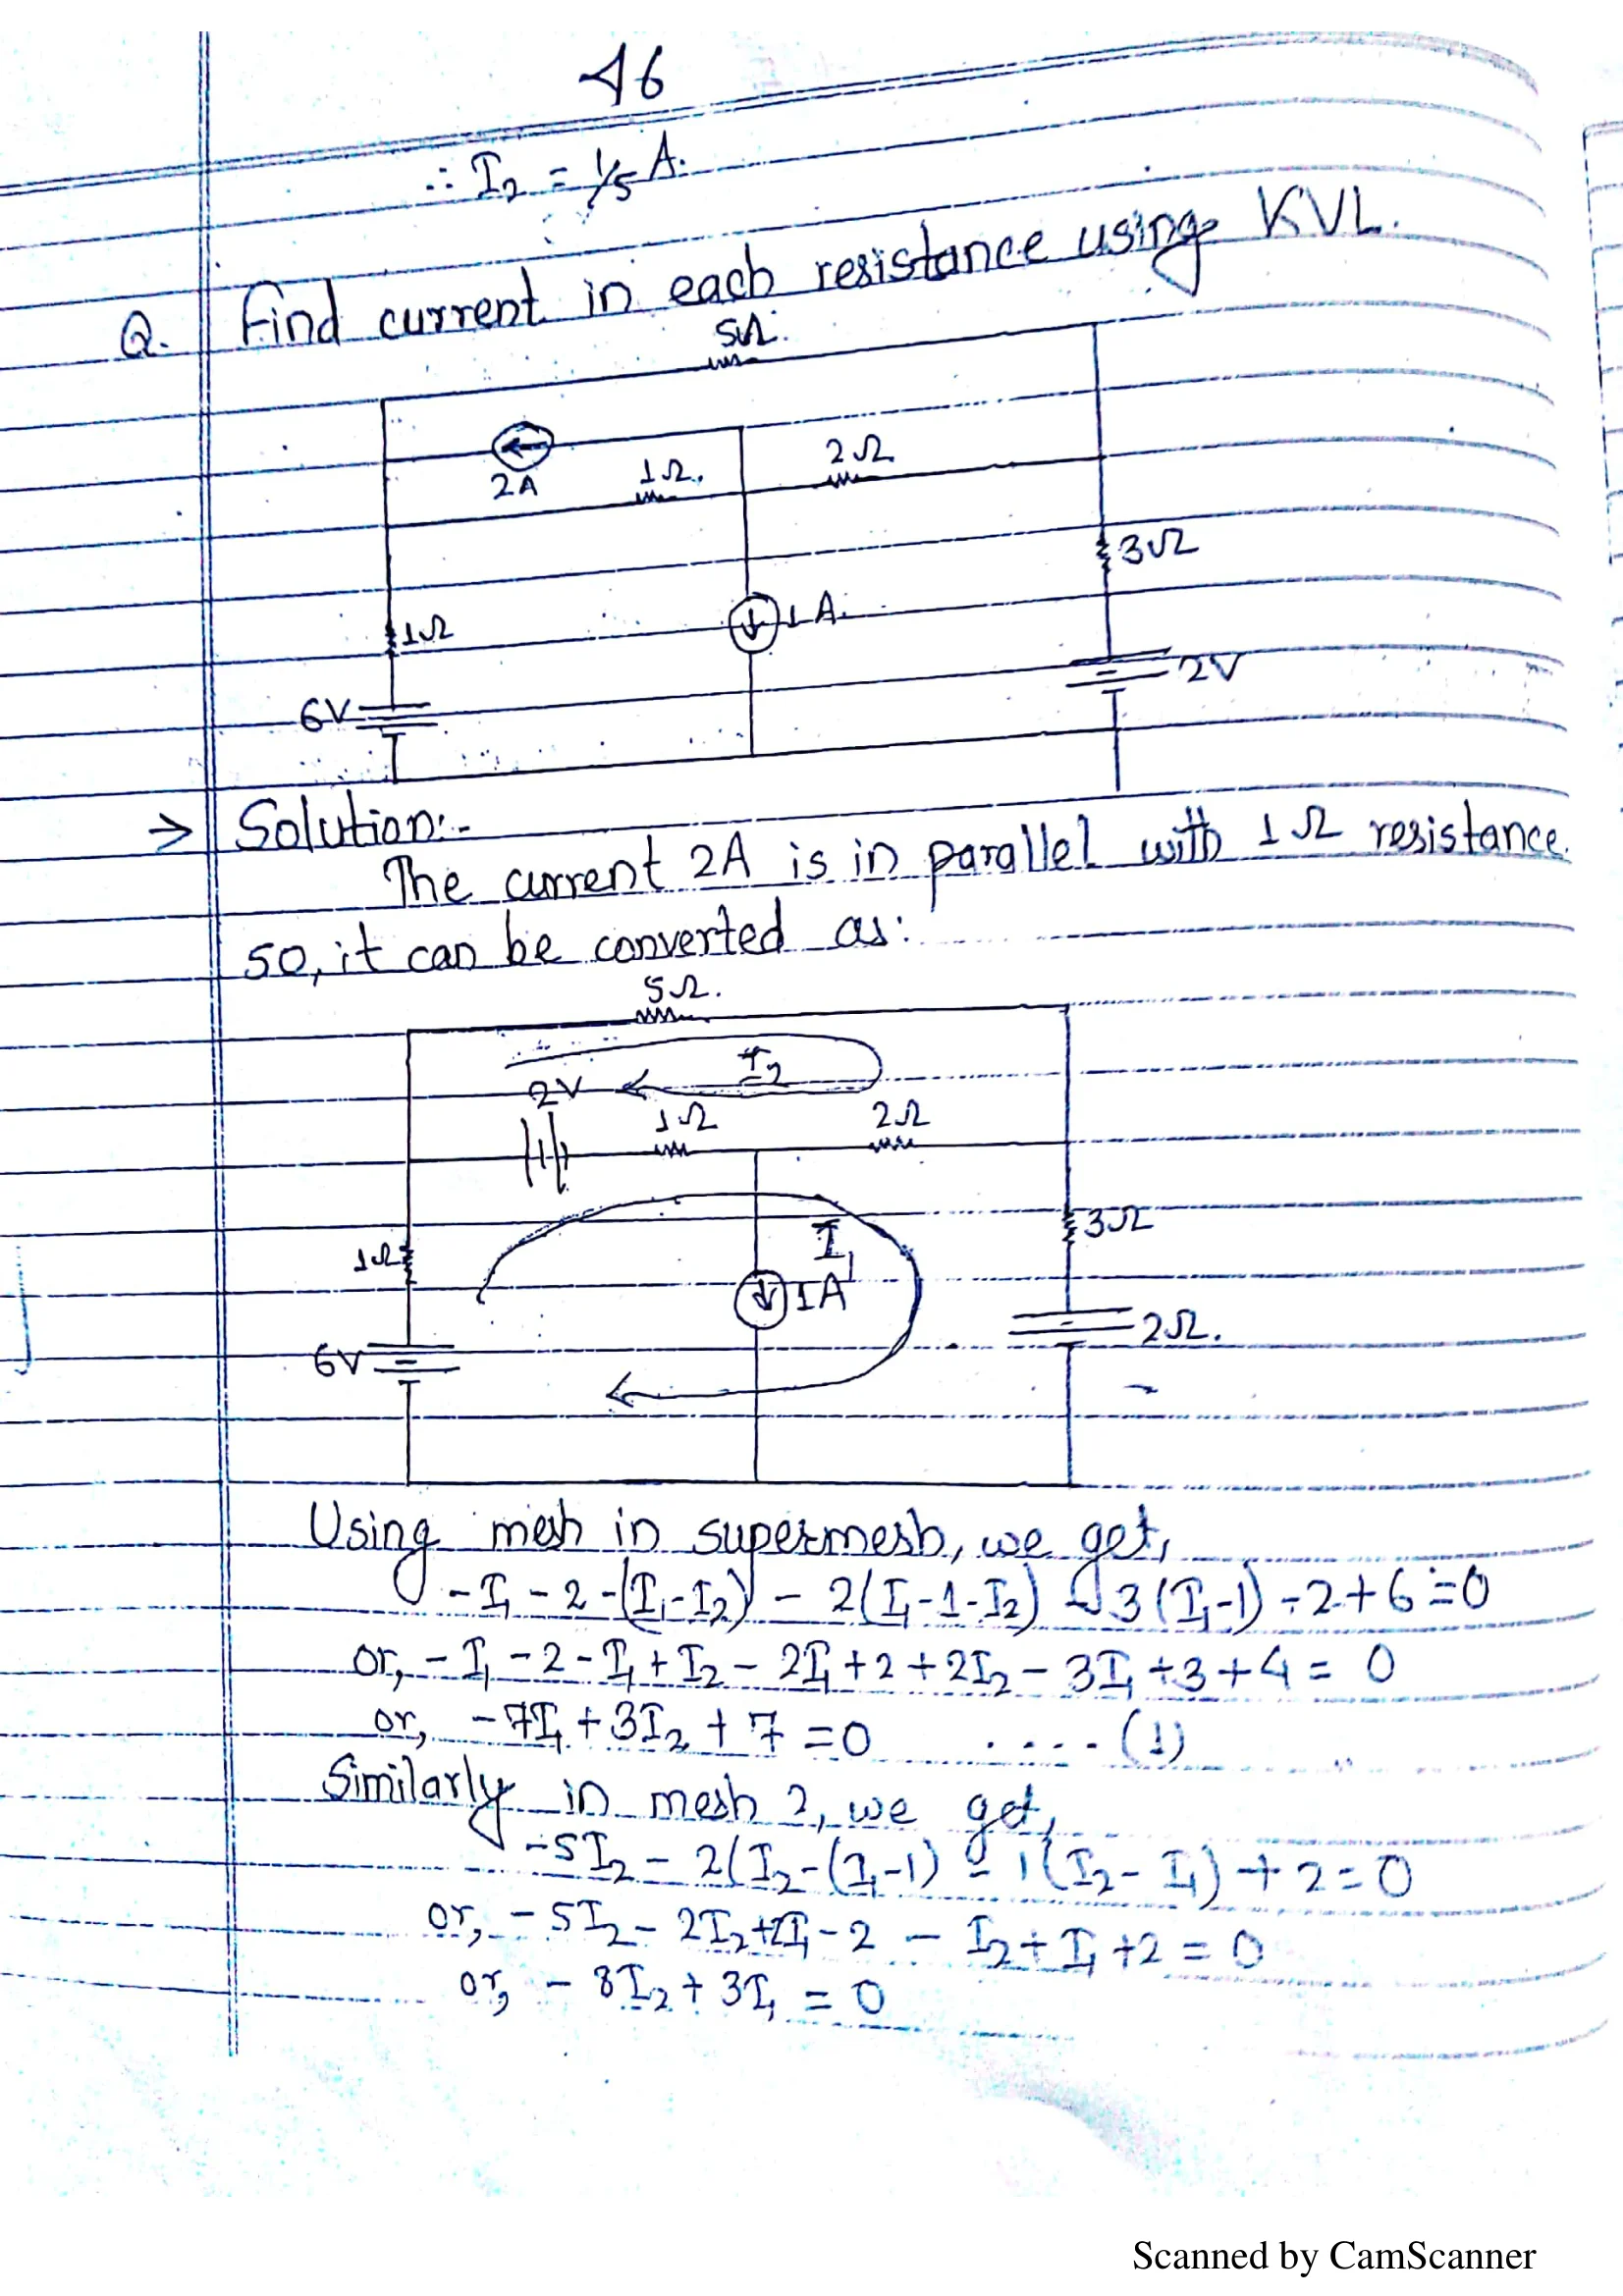 46
∴ I₂ = 1/5 A.
Q. Find current in each resistance using KVL.
5Ω.
2A
1Ω.
2Ω
3Ω
1Ω
1A.
2V
6V
→ Solution:-
The current 2A is in parallel with 1Ω resistance.
so, it can be converted as:
5Ω.
I₂
2V
1Ω
2Ω
3Ω
I₁
1Ω
1A
2Ω.
6V
Using mesh in supermesh, we get,
-I₁ - 2 - (I₁-I₂) - 2(I₁-1-I₂) - 3(I₁-1) - 2 + 6 = 0
or, - I₁ - 2 - I₁ + I₂ - 2I₁ + 2 + 2I₂ - 3I₁ + 3 + 4 = 0
or, -7I₁ + 3I₂ + 7 = 0 ....(1)
Similarly in mesh 2, we get,
-5I₂ - 2(I₂-(I₁-1) - 1(I₂- I₁) + 2 = 0
or, - 5I₂ - 2I₂ + 2I₁ - 2 - I₂ + I₁ + 2 = 0
or, - 8I₂ + 3I₁ = 0
Scanned by CamScanner